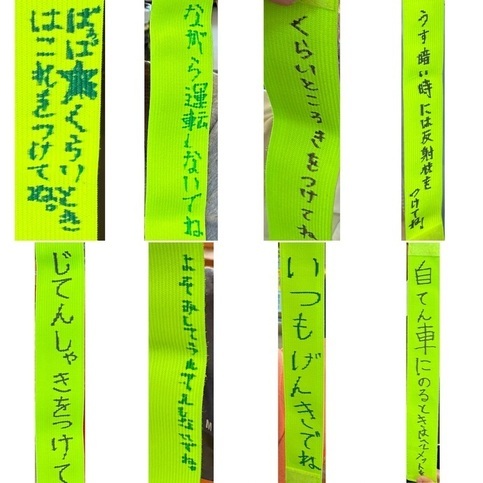 ばぁば★くらいとき
はこれをつけてね。
ながら運転しないでね
くらいところきをつけてね
うす暗い時には反射材を
つけてね。
じてんしゃきをつけて
よそみしてうんてんしないでね。
いつもげんきでね
自てん車にのるときはヘルメットを